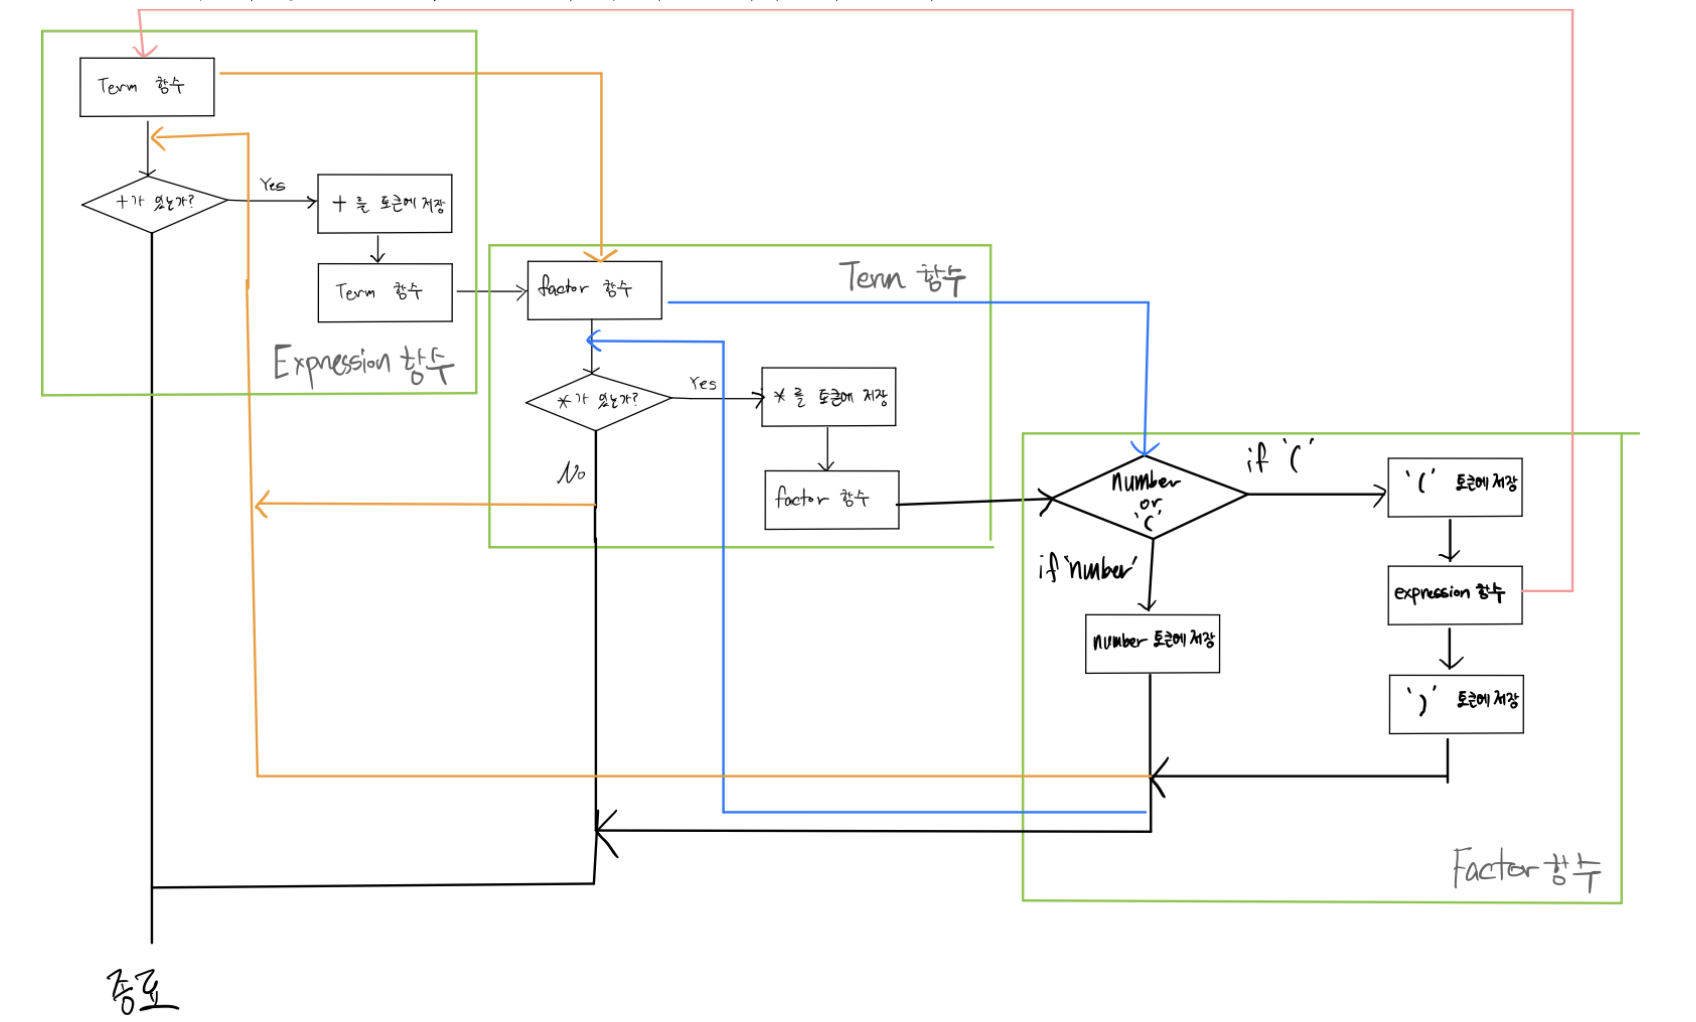 Term 함수
+가 있는가?
Yes
+ 를 토큰에 저장
Term 함수
Expression 함수
factor 함수
Term 함수
*가 있는가?
Yes
* 를 토큰에 저장
No
factor 함수
number
or
'('
if '('
'(' 토큰에 저장
if 'number'
expression 함수
number 토큰에 저장
')' 토큰에 저장
Factor 함수
종료